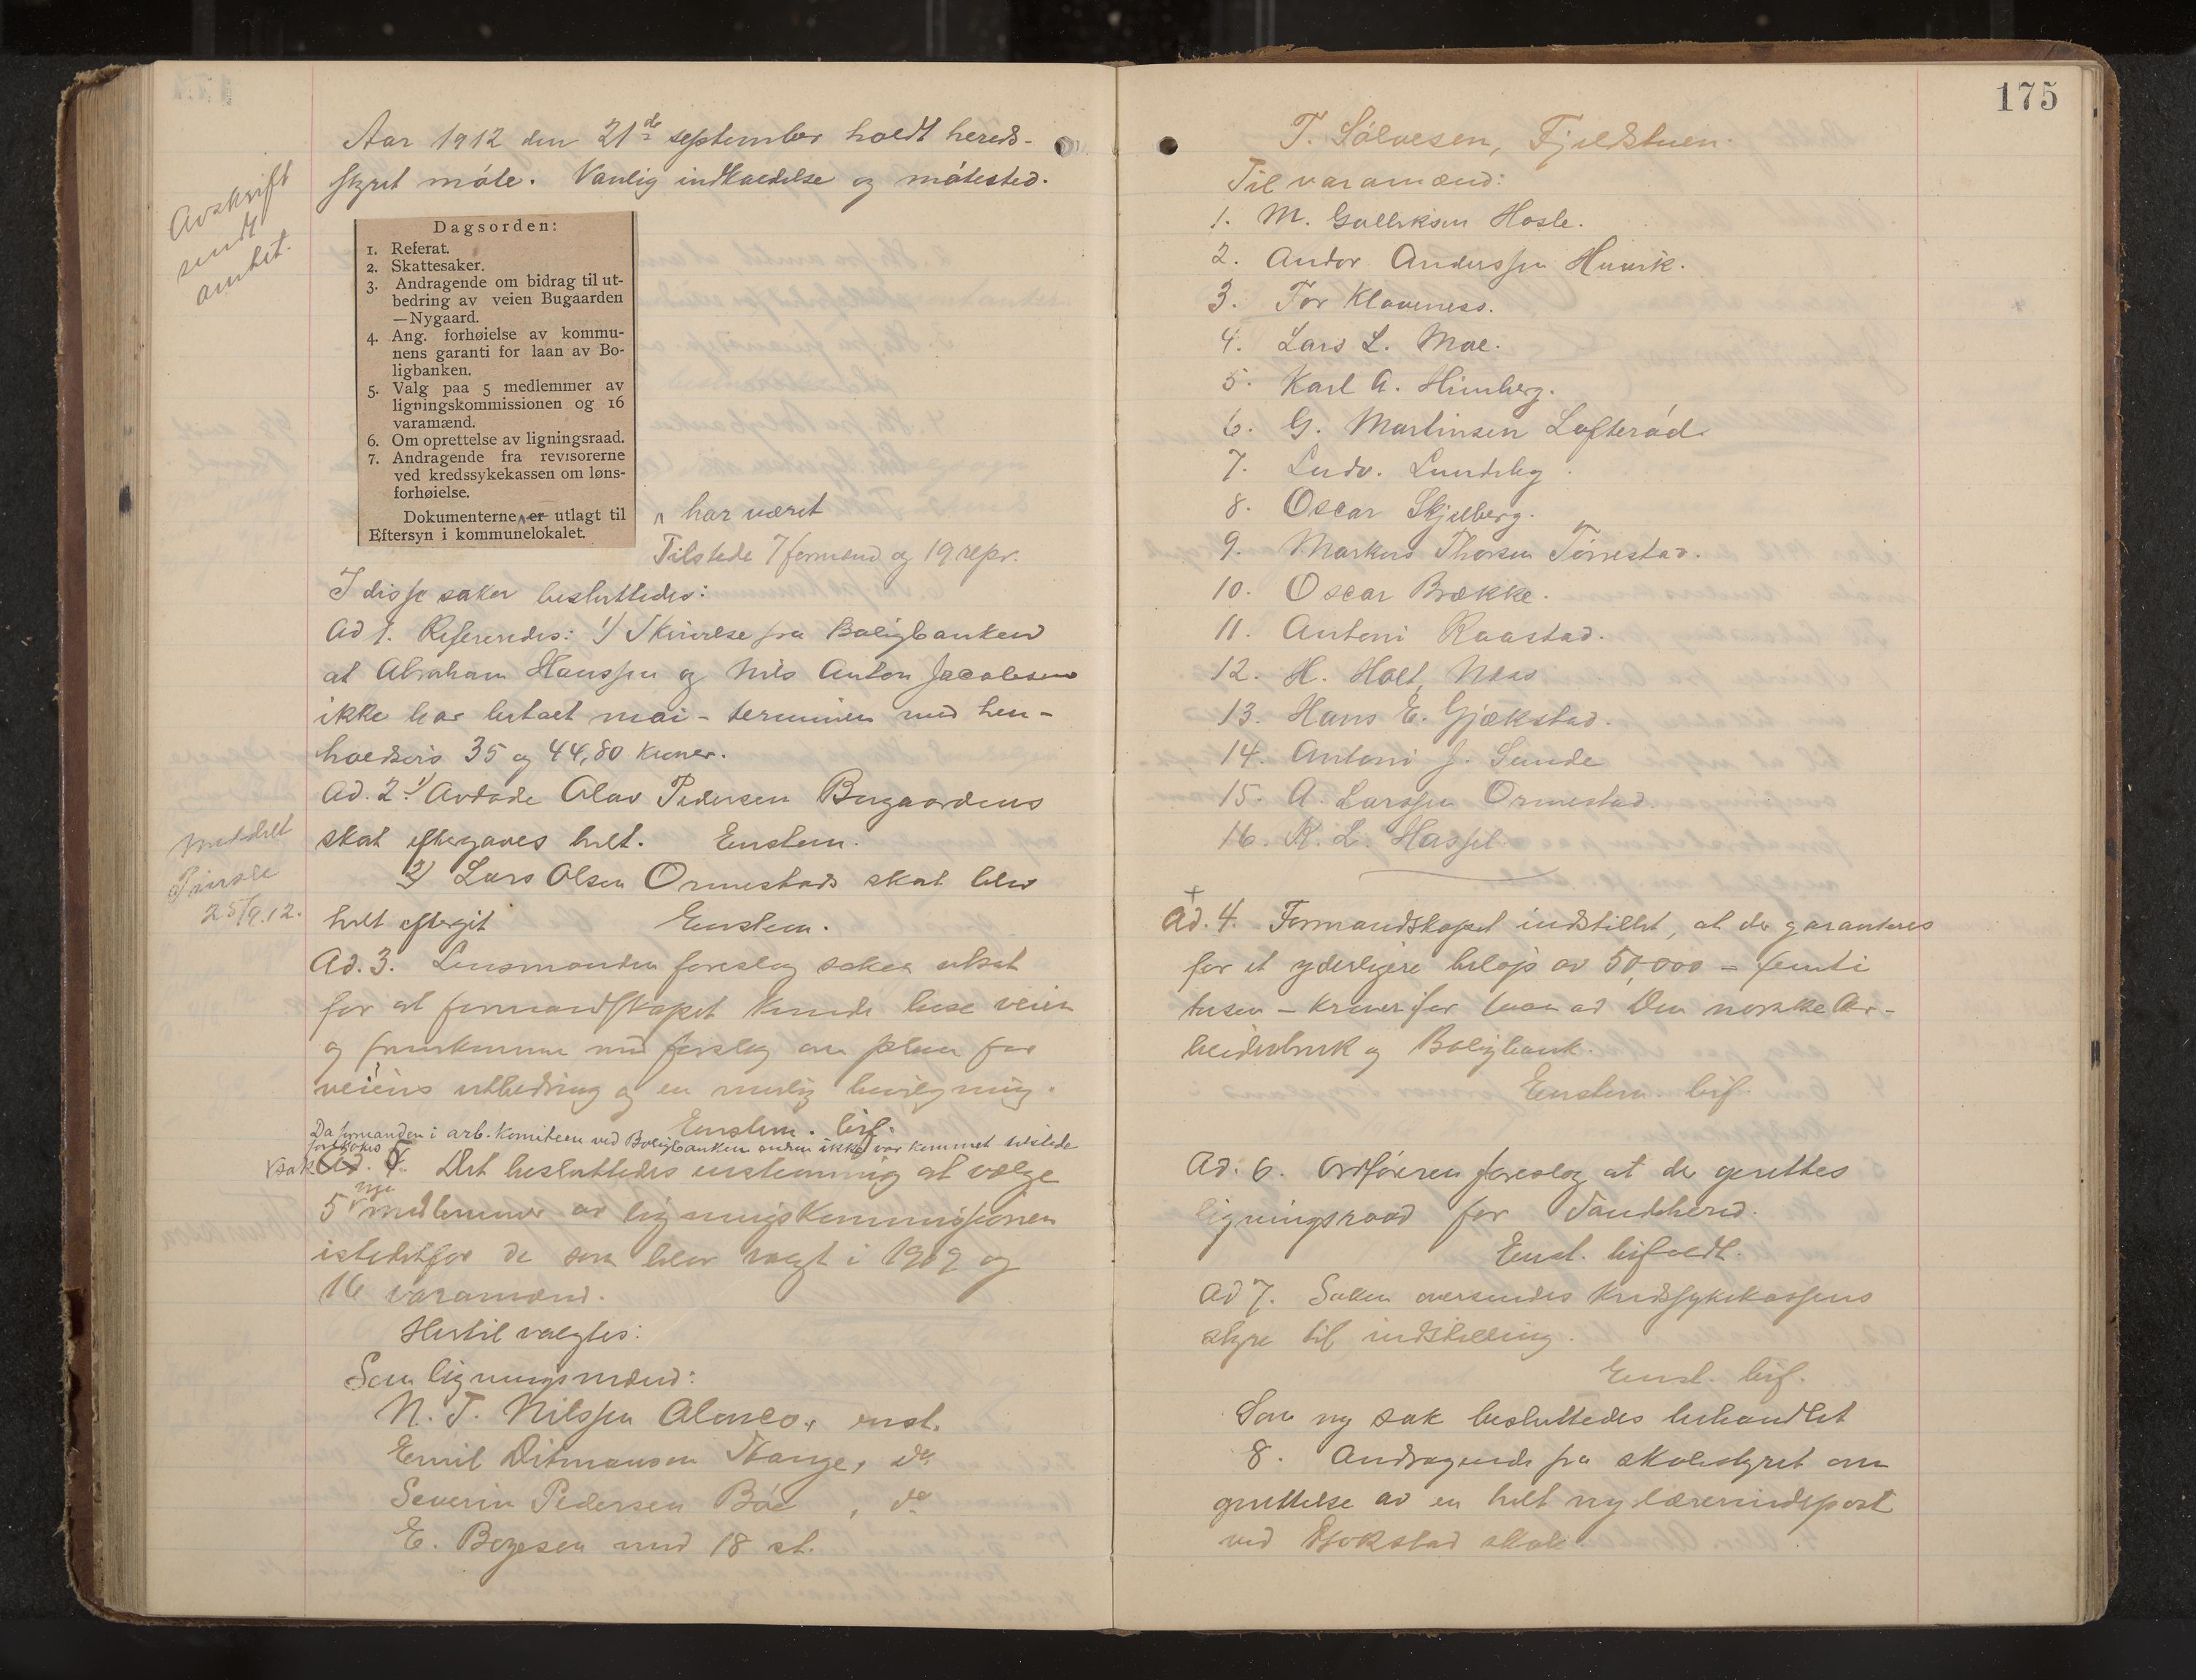 Aar 1912 den 21de september holdt hereds-
styret møte. Vanlig indkaldelse og møtested.
Avskrift
sendt
amtet.
Dagsorden:
1. Referat.
2. Skattesaker.
3. Andragende om bidrag til ut-
bedring av veien Bugaarden
—Nygaard.
4. Ang. forhøielse av kommu-
nens garanti for laan av Bo-
ligbanken.
5. Valg paa 5 medlemmer av
ligningskommissionen og 16
varamænd.
6. Om oprettelse av ligningsraad.
7. Andragende fra revisorerne
ved kredssykekassen om løns-
forhøielse.
Dokumenterne er utlagt til
Eftersyn i kommunelokalet.
har været
Tilstede 7 formænd og 19 repr.
I disse saker besluttedes:
Ad 1. Refereredes: 1) Skrivelse fra Boligbanken
at Abraham Hanssen og Nils Anton Jacobsen
ikke har betaet mai-terminen med hen-
holdsvis 35 og 44,80 kroner.
Ad. 2. 1) Avdøde Olav Pedersen Bugaardens
skat eftergaves helt. Enstem.
2) Lars Olsen Ormestads skat blev
helt eftergit Enstem.
Meddelt
25/9.12.
Ad. 3. Lensmanden foreslog saken utsat
for at formandskapet kunde bese veien
og fremkomme med forslag om plan for
veiens utbedring og en mulig bevilgning.
Enstem. bif.
Da formanden i arb. komiteen ved Boligbanken endnu ikke var kommet tilstede
sak
Ad. 5. Det besluttedes enstemmig at vælge
nye
5 medlemmer av ligningskommissionen
istedetfor de som blev valgt i 1909 og
16 varamænd.
Hertil valgtes:
Som ligningsmænd:
N. T. Nilssen Almco, enst.
Emil Ditmansen Stange, do
Severin Pedersen Bøe, do
E. Bogesen med 18 st.
175
T. Sølvesen, Fjeldstuen.
Til varamænd:
1. M. Gulliksen Hasle.
2. Andor Anderssen Huvik.
3. Tor Klaveness.
4. Lars L. Moe.
5. Karl A. Himberg.
6. G. Martinsen Lofterød.
7. Ludv. Lundeby.
8. Oscar Skjelberg.
9. Markus Thorsen Tørrestad.
10. Oscar Brække.
11. Antoni Raastad.
12. H. Holt, Næs
13. Hans E. Gjækstad.
14. Antoni J. Sunde
15. A. Larssen Ormestad.
16. K. L. Hassel.
+
Ad. 4. Formandskapet indstillet, at der garanteres
for et yderligere beløp av 50,000 – femti
tusen – kroner for laan av Den norske Ar-
beiderbruk og Boligbank.
Enstem. bif.
Ad. 6. Ordføreren foreslog at der oprettes
ligningsraad for Sandeherred.
Enst. bifaldt.
Ad 7. Saken oversendes kredssykekassens
styre til indstilling.
Enst. bif.
Som ny sak besluttedes behandlet
8. Andragende fra skolestyret om
oprettelse av en helt ny lærerindepost
ved Gokstad skole.